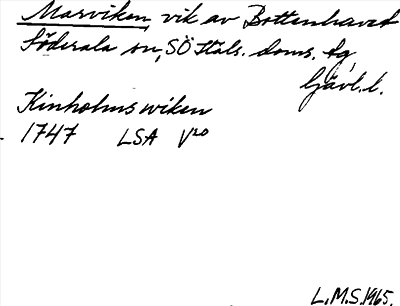 Marviken, vik av Bottenhavet
Söderala sn, SÖ Häls. doms. tg,
Gävl. l.
Kinholmswiken
1747 LSA V20
L.M.S. 1965.